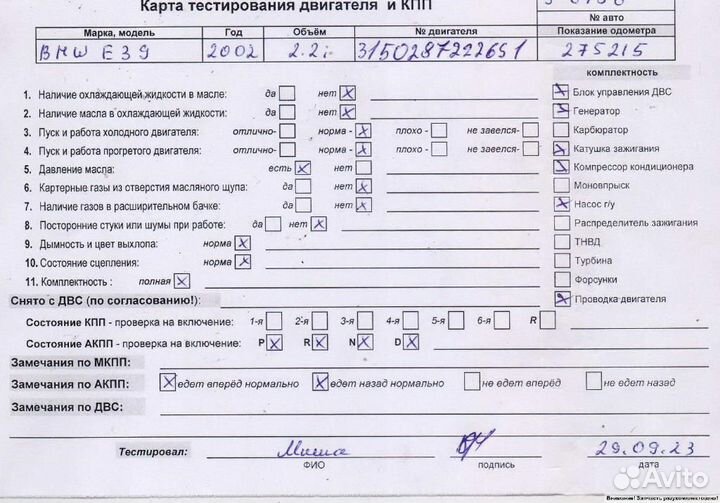 Карта тестирования двигателя и КПП
№ авто
Марка, модель Год Объём № двигателя Показание одометра
BMW E39 2002 2.2i 3150287222651 275215
комплектность
1. Наличие охлаждающей жидкости в масле: да нет X
Блок управления ДВС
2. Наличие масла в охлаждающей жидкости: да нет X
Генератор
3. Пуск и работа холодного двигателя: отлично- норма - X плохо - не завелся-
Карбюратор
4. Пуск и работа прогретого двигателя: отлично- норма - X плохо - не завелся-
Катушка зажигания
5. Давление масла: есть X нет
Компрессор кондиционера
6. Картерные газы из отверстия масляного щупа: да нет X
Моновпрыск
7. Наличие газов в расширительном бачке: да нет X
Насос г/у
8. Посторонние стуки или шумы при работе: да нет X
Распределитель зажигания
9. Дымность и цвет выхлопа: норма X
ТНВД
10. Состояние сцепления: норма X
Турбина
11. Комплектность : полная X
Форсунки
Снято с ДВС (по согласованию!):
Проводка двигателя
Состояние КПП - проверка на включение: 1-я 2-я 3-я 4-я 5-я 6-я R
Состояние АКПП - проверка на включение: P X R X N X D X
Замечания по МКПП:
Замечания по АКПП: X едет вперёд нормально X едет назад нормально не едет вперёд не едет назад
Замечания по ДВС:
Тестировал: Миша 29.09.23
ФИО подпись дата
Avito
Внимание! Запчасть разукомплектована!